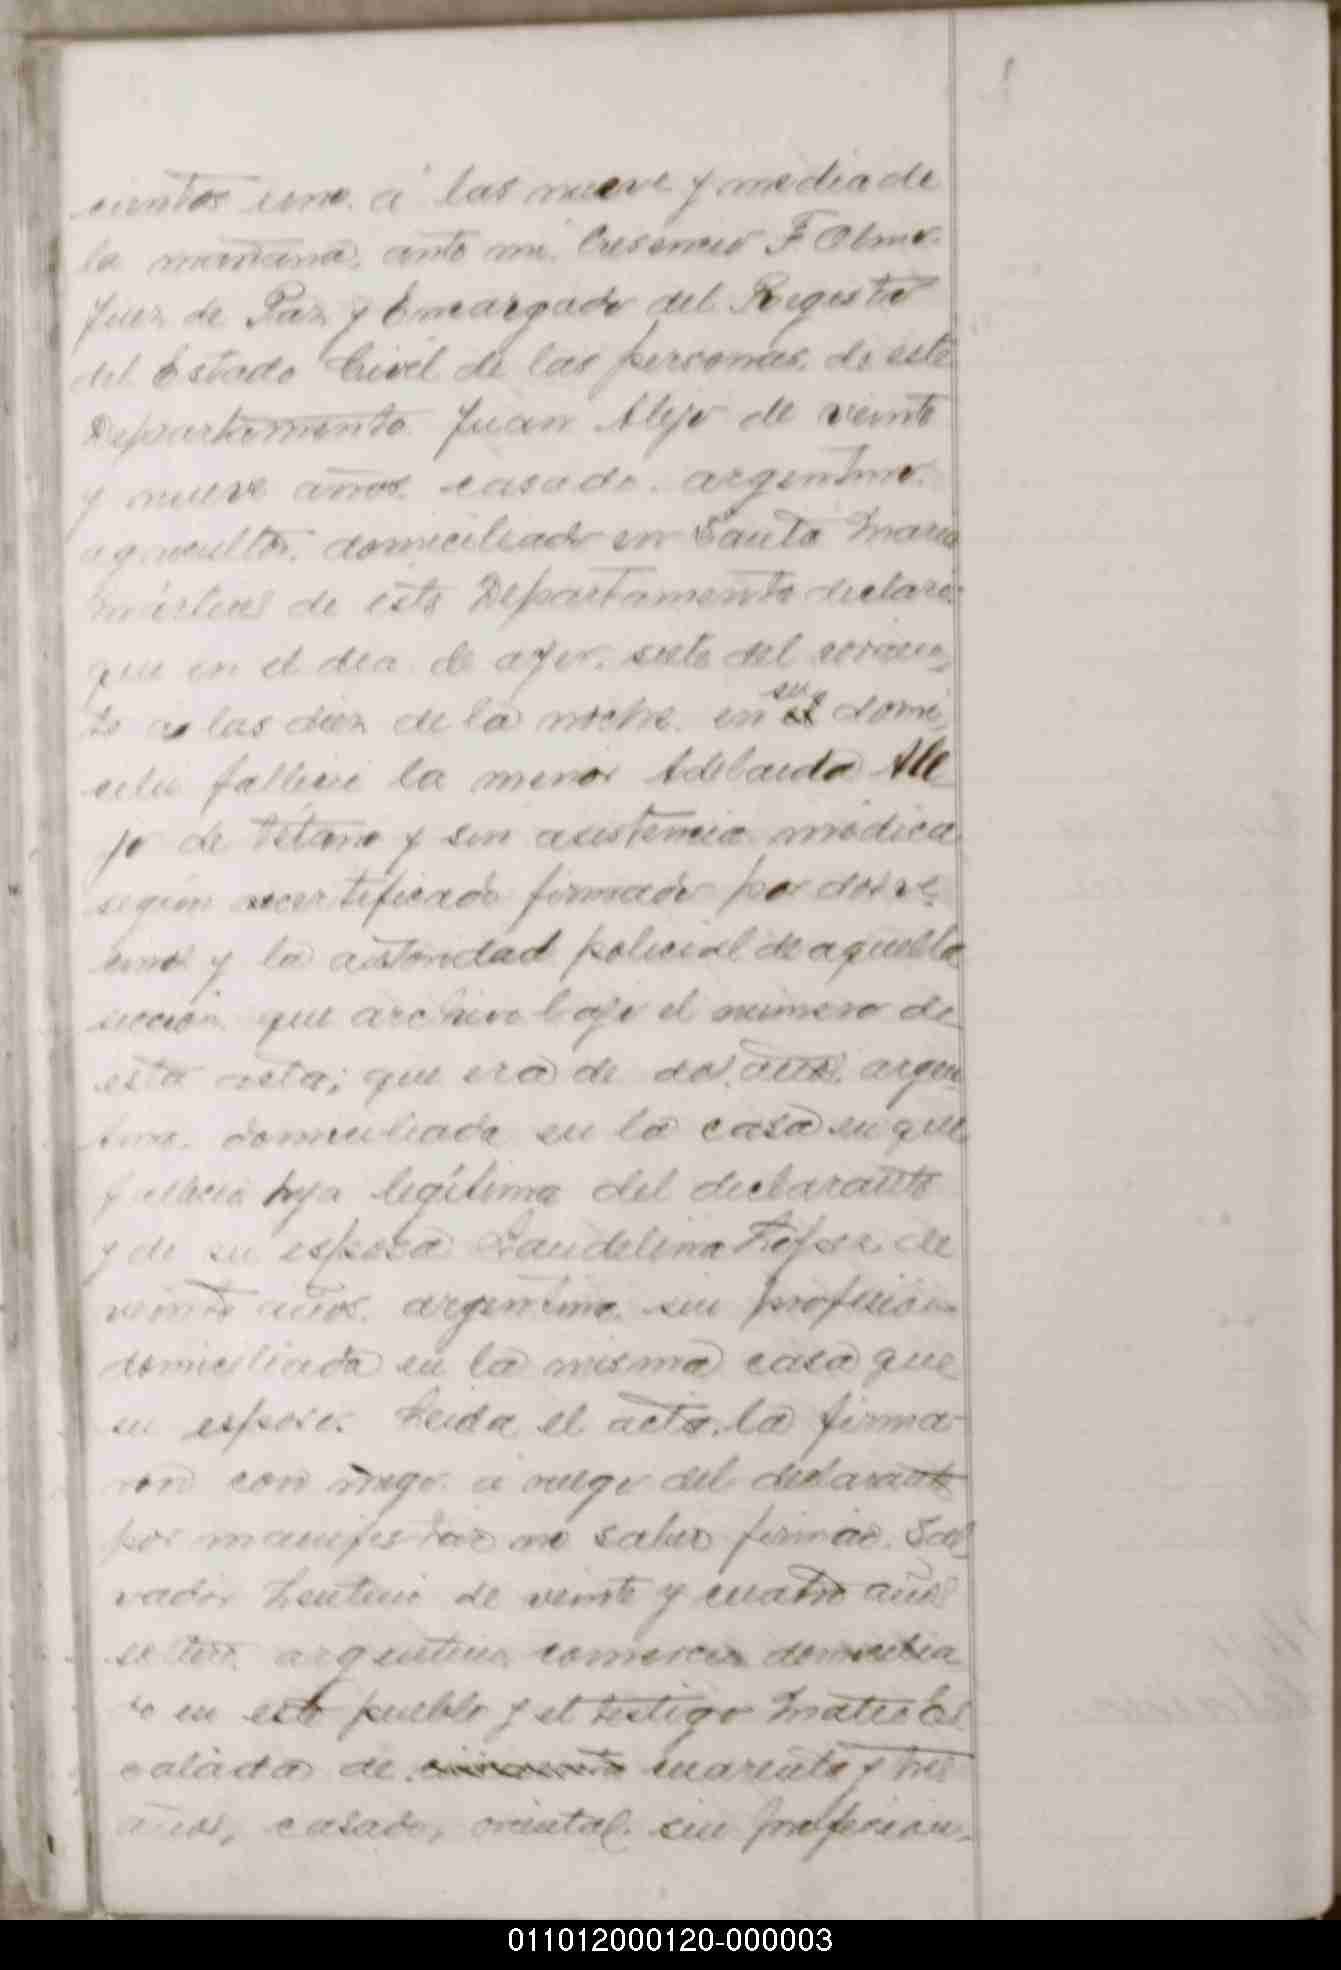 cientos uno. á las nueve y media de
la mañana. ante mi. Cresencio F Olmo.
Juez de Paz y Encargado del Registro
del Estado Civil de las personas, de este
Departamento. Juan Alejo de veinte
y nueve años. casado. argentino.
agricultor. domiciliado en Santa Maria
mártires de este Departamento declaró:
que en el dia de ayer. siete del corrien,
te a las diez de la noche. en su domi,
cilio falleció la menor Adelaida Ale
jo de tétano y sin asistencia médica.
según certificado firmado por dos ve,
cinos y la autoridad policial de aquella
sección. que archivo bajo el número de
esta acta; que era de dos años. argen
tina. domiciliada en la casa en que
falleció hija legítima del declarante
y de su esposa Laudelina López, de
veinte años. argentina. sin profesión
domiciliada en la misma casa que
su esposo. Leida el acta. la firma-
ron con migo. á ruego del declarante
por manifestar no saber firmar. Sal
vador de veinte y cuatro años
soltero. argentino comercio domicilia
do en este pueblo y el testigo Mateo Es
calada de. cuarenta y tres
años, casado, oriental. sin profesion.
011012000120-000003